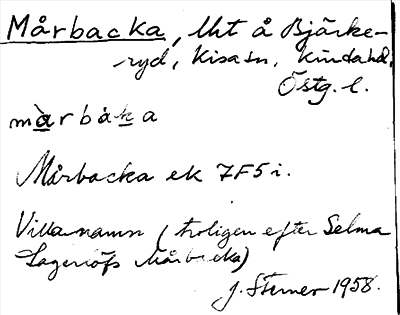 Mårbacka, lht å Bjärke-
ryd, Kisa sn, Kinda hd,
Östg. l.
màrbáka
Mårbacka ek 7F5i.
Villanamn (troligen efter Selma
Lagerlöfs Mårbacka)
J. Sterner 1958.